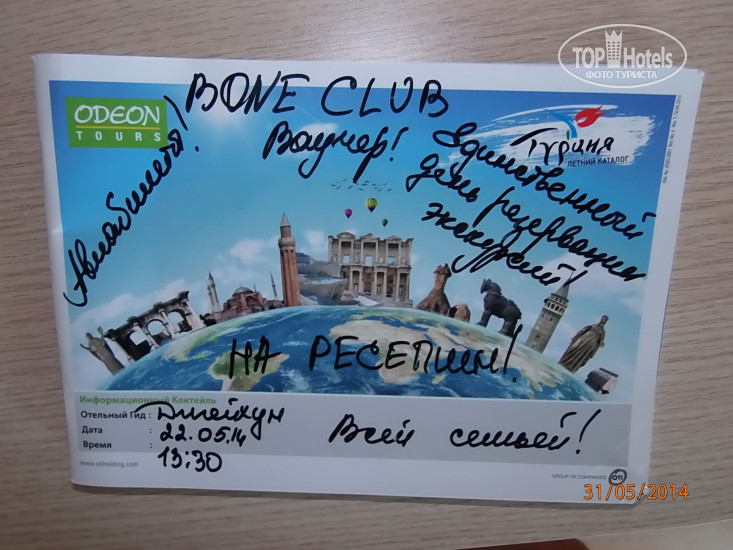 TOP Hotels
ФОТО ТУРИСТА
ODEON
TOURS
BONE CLUB
Ваучер!
Авиабилеты!
Турция
ЛЕТНИЙ КАТАЛОГ
Единственный
день резервации
экскурсий!
НА РЕСЕПШН!
Информационный Коктейль
Отельный Гид : Джейхун
Дата : 22.05.14
Время : 13:30
Всей семьей!
www.otiholding.com
GROUP OF COMPANIES oti
31/05/2014